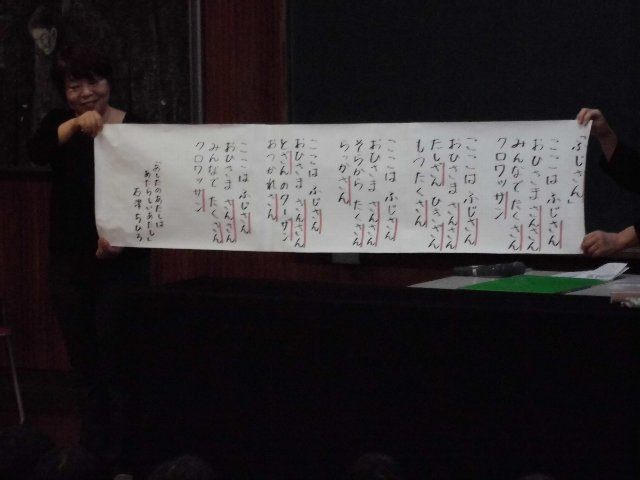 「ふじさん」
ここは ふじさん
おひさま さんさん
みんなで たくさん
クロワッサン
ここは ふじさん
おひさま さんさん
たしざん ひきざん
もつ たくさん
ここは ふじさん
おひさま さんさん
そらから たくさん
らっかさん
ここは ふじさん
おひさま さんさん
とざんの クーサン
おつかれさん
ここは ふじさん
おひさま さんさん
みんなで たくさん
クロワッサン
「あしたのあたしは
あたらしいあたし」
石津 ちひろ